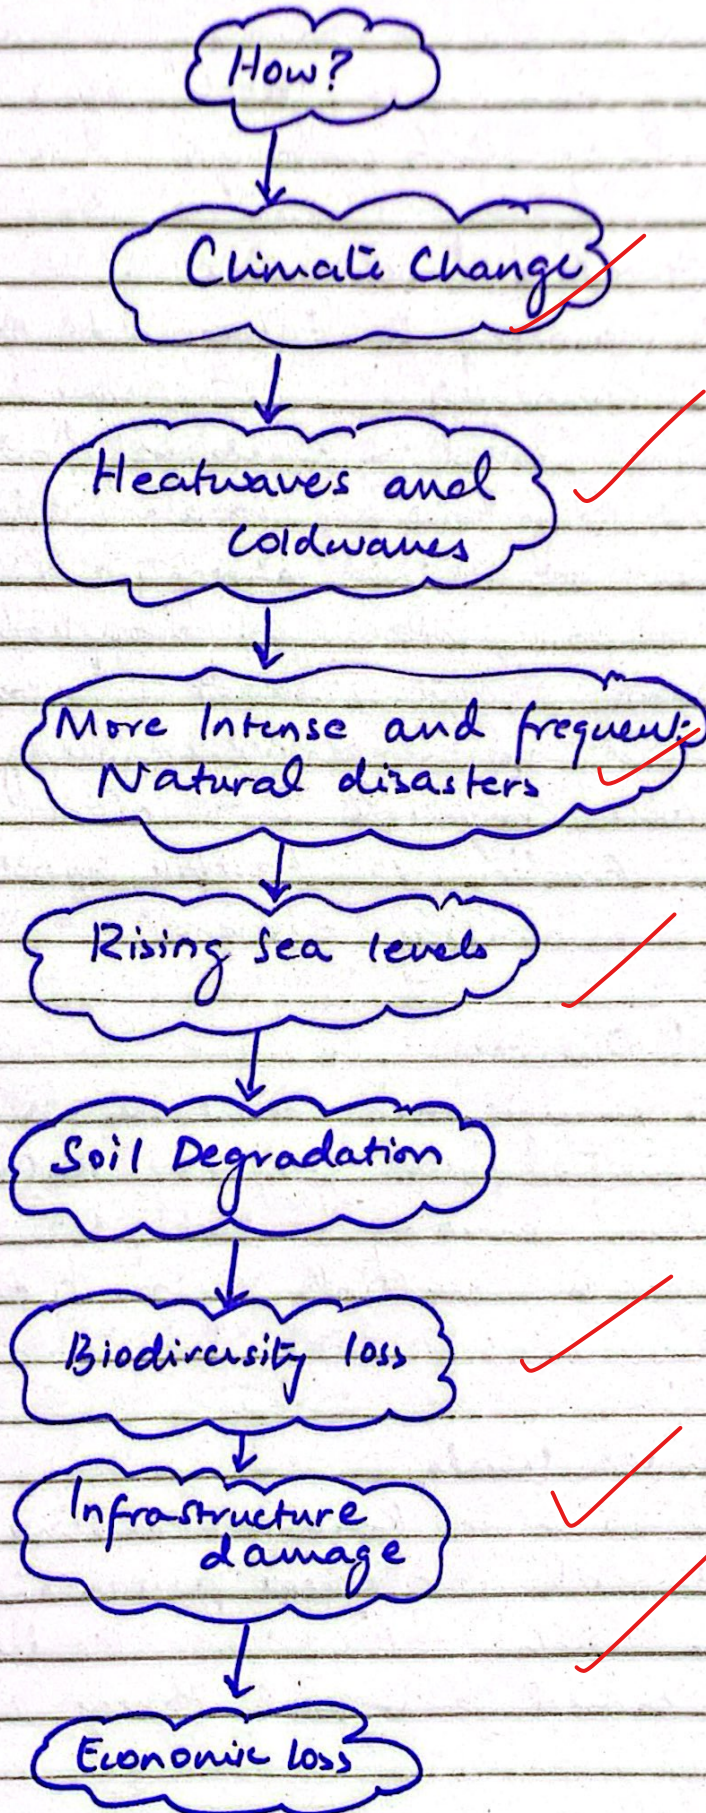 How?
Climate Change
Heatwaves and
coldwaves
More Intense and frequent
Natural disasters
Rising sea levels
Soil Degradation
Biodiversity loss
Infrastructure
damage
Economic loss